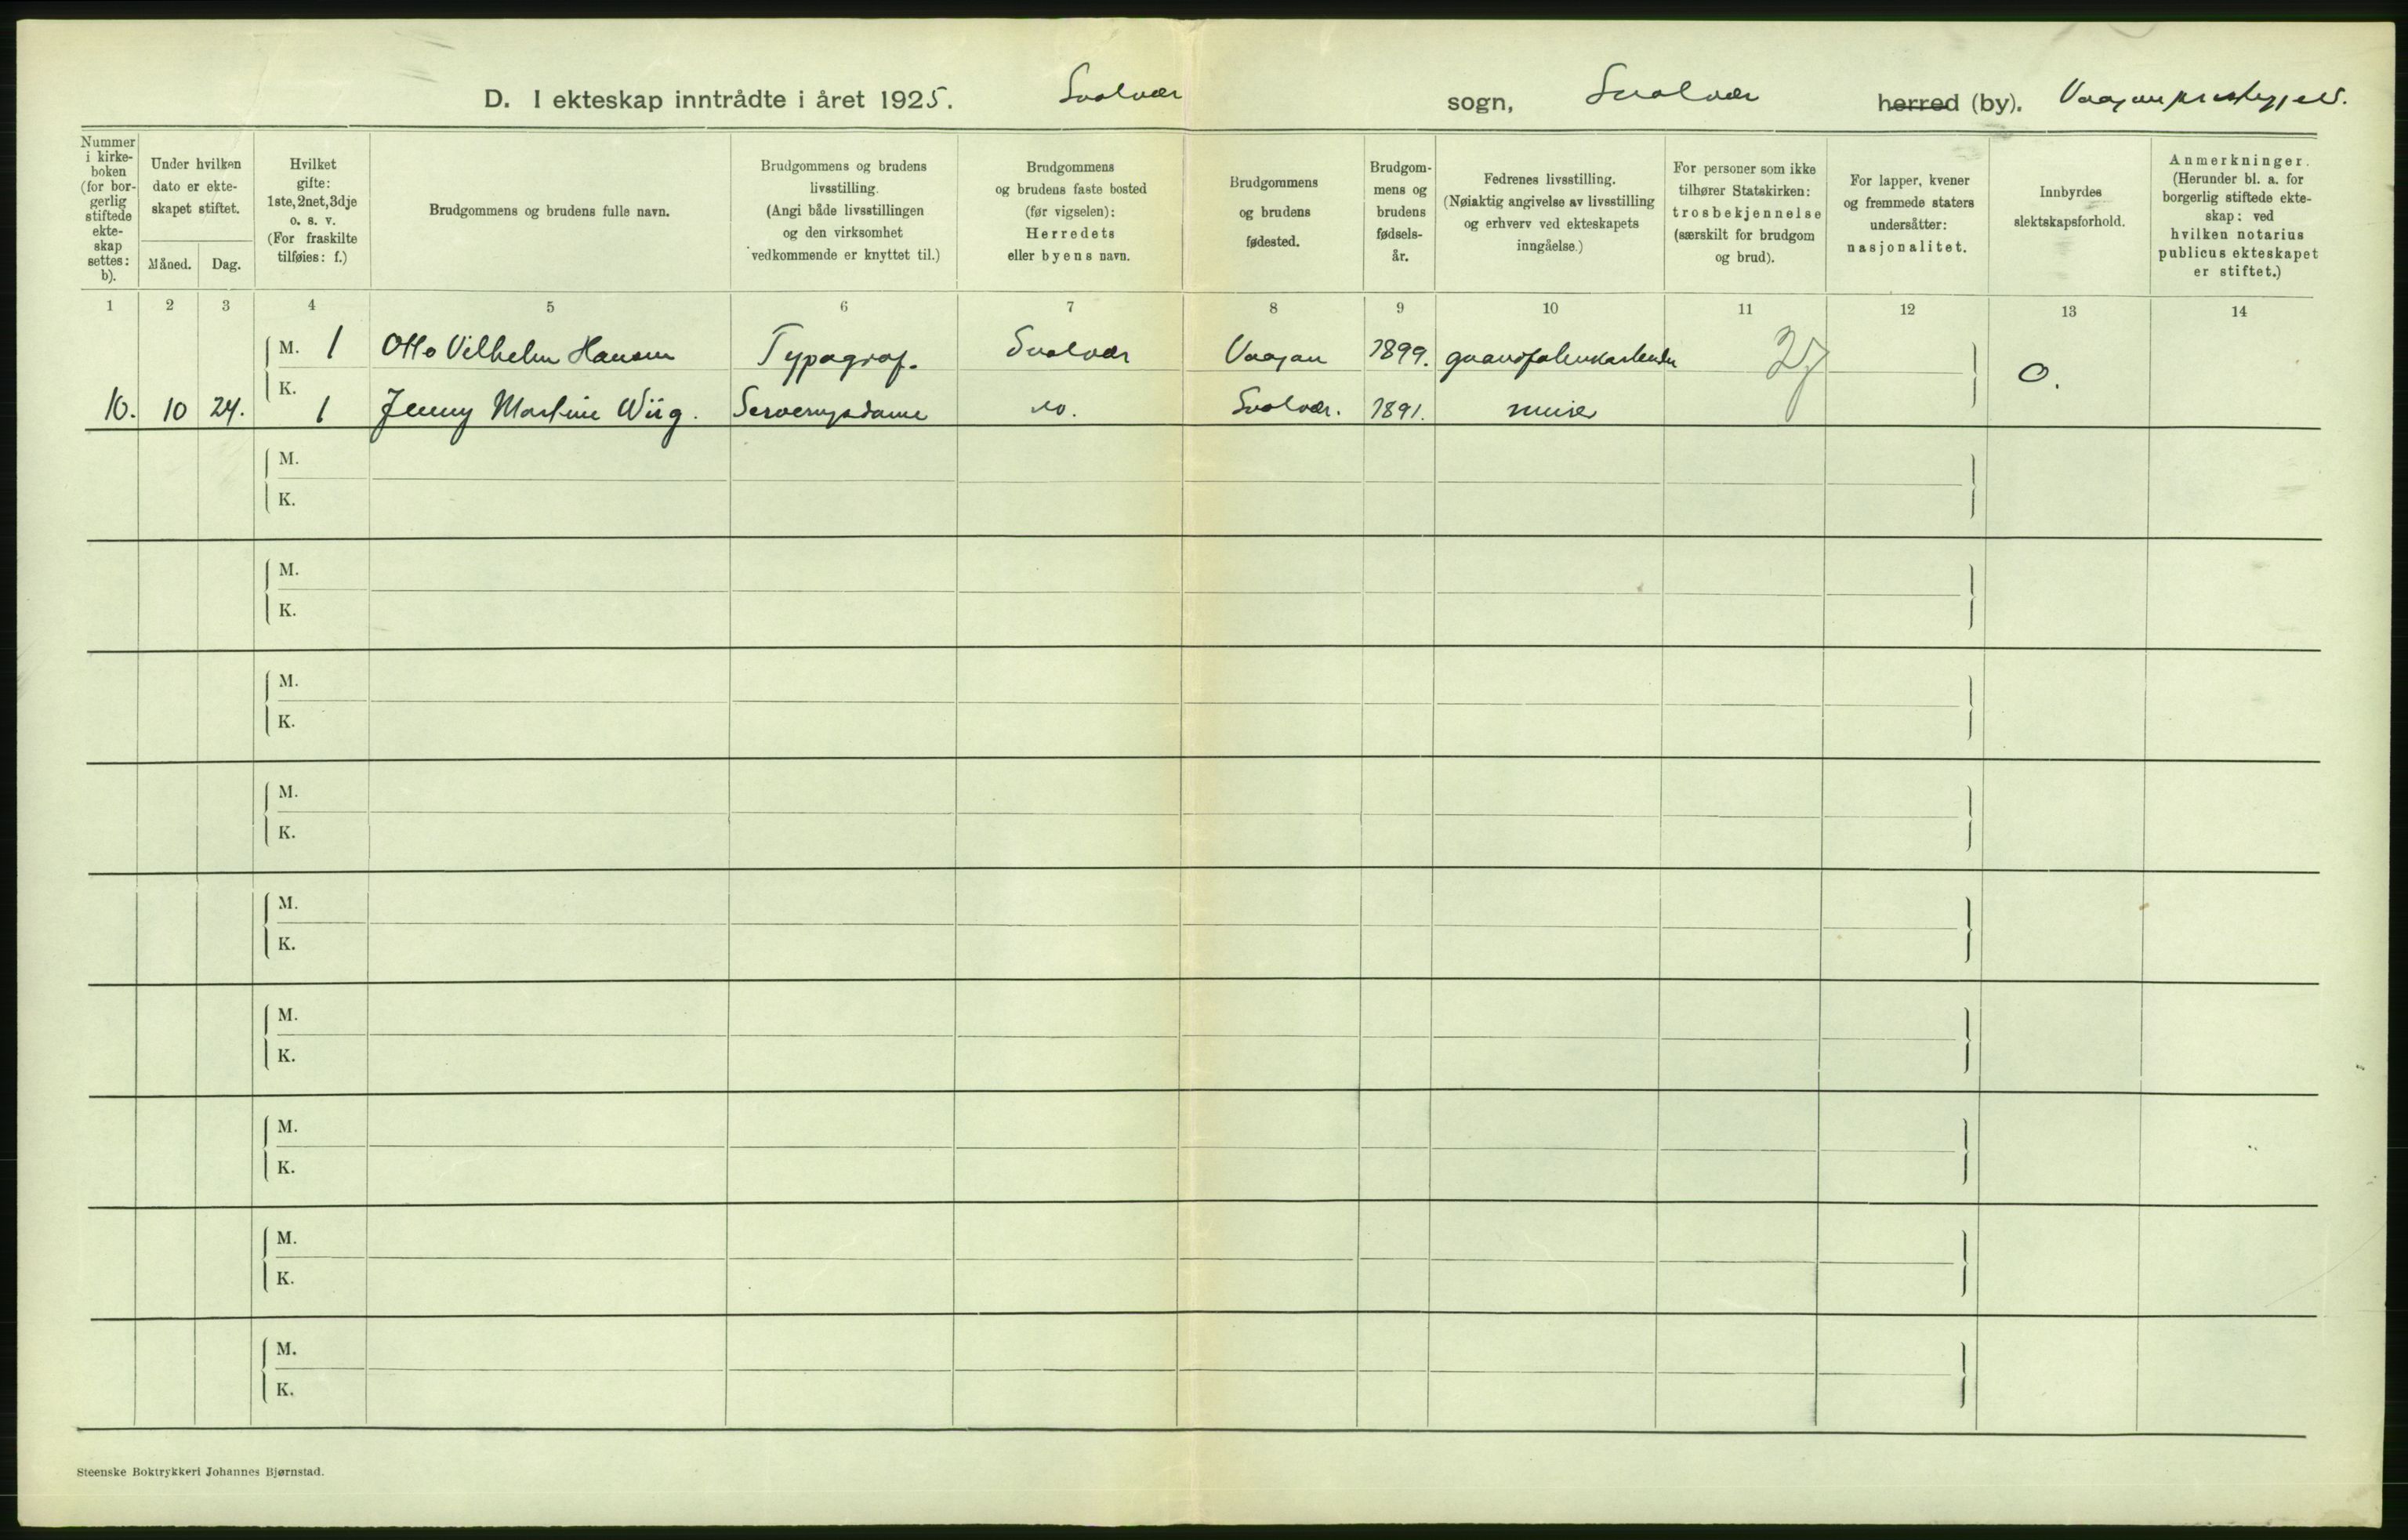 D. I ekteskap inntrådte i året 1925. Svolvær sogn, Svolvær herred (by). Vaagan prestegjeld.
Nummer
i kirke-
boken
(for bor-
gerlig
stiftede
ekte-
skap
settes:
b).
Under hvilken
dato er ekte-
skapet stiftet.
Måned. Dag.
Hvilket
gifte:
1ste, 2net, 3dje
o. s. v.
(For fraskilte
tilføies: f.)
Brudgommens og brudens fulle navn.
Brudgommens og brudens
livsstilling.
(Angi både livsstillingen
og den virksomhet
vedkommende er knyttet til.)
Brudgommens
og brudens faste bosted
(før vigselen):
Herredets
eller byens navn.
Brudgommens
og brudens
fødested.
Brudgom-
mens og
brudens
fødsels-
år.
Fedrenes livsstilling.
(Nøiaktig angivelse av livsstilling
og erhverv ved ekteskapets
inngåelse.)
For personer som ikke
tilhører Statskirken:
trosbekjennelse
(særskilt for brudgom
og brud).
For lapper, kvener
og fremmede staters
undersåtter:
nasjonalitet.
Innbyrdes
slektskapsforhold.
Anmerkninger.
(Herunder bl. a. for
borgerlig stiftede ekte-
skap: ved
hvilken notarius
publicus ekteskapet
er stiftet.)
1 2 3 4 5 6 7 8 9 10 11 12 13 14
M. 1 Otto Vilhelm Hansen Typograf. Svolvær Vaagan 1899. 0.
K.
10. 10 24. 1 Jenny Martine Wiig. Serveringsdame do. Svolvær. 1891. murer
M.
K.
M.
K.
M.
K.
M.
K.
M.
K.
M.
K.
M.
K.
M.
K.
M.
K.
Steenske Boktrykkeri Johannes Bjørnstad.